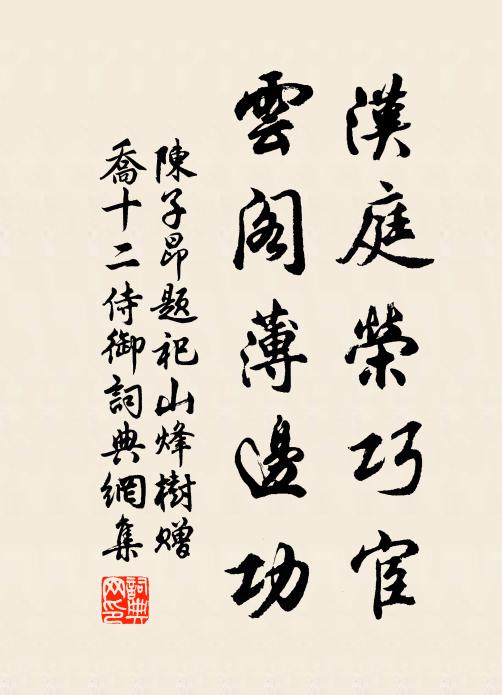 漢庭榮巧宦
雲閣薄邊功
陳子昂題祀山烽樹贈
喬十二侍御詞典網集
詞典網印